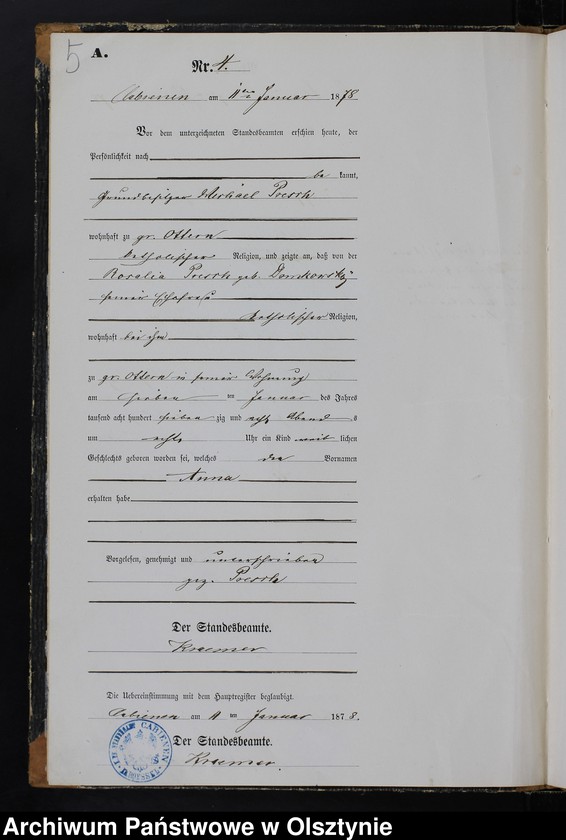 5
A.
Nr. 4.
Cabienen am 11ten Januar 1878
Vor dem unterzeichneten Standesbeamten erschien heute, der
Persönlichkeit nach
be kannt,
Grundbesitzer Michael Poersch
wohnhaft zu gr. Ottern
katholischer Religion, und zeigte an, daß von der
Rosalia Poersch geb. Domkowsky
seiner Ehefrau
katholischer Religion,
wohnhaft bei ihm
zu gr. Ottern in seiner Wohnung
am sieben ten Januar des Jahres
tausend acht hundert sieben zig und acht Abend s
um acht Uhr ein Kind weib lichen
Geschlechts geboren worden sei, welches den Vornamen
Anna
erhalten habe
Vorgelesen, genehmigt und unterschrieben
gez. Poersch
Der Standesbeamte.
Kraemer
Die Uebereinstimmung mit dem Hauptregister beglaubigt.
Cabienen am 11 ten Januar 1878.
Der Standesbeamte.
Kraemer.
CABIENEN
KR. ROESSEL
Archiwum Państwowe w Olsztynie